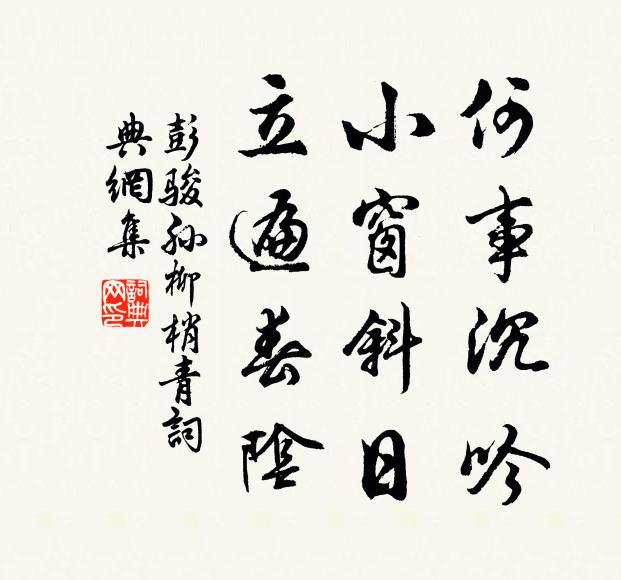 何事沉吟
小窗斜日
立遍春陰
彭骏孙柳梢青詞
典網集
詞典網印